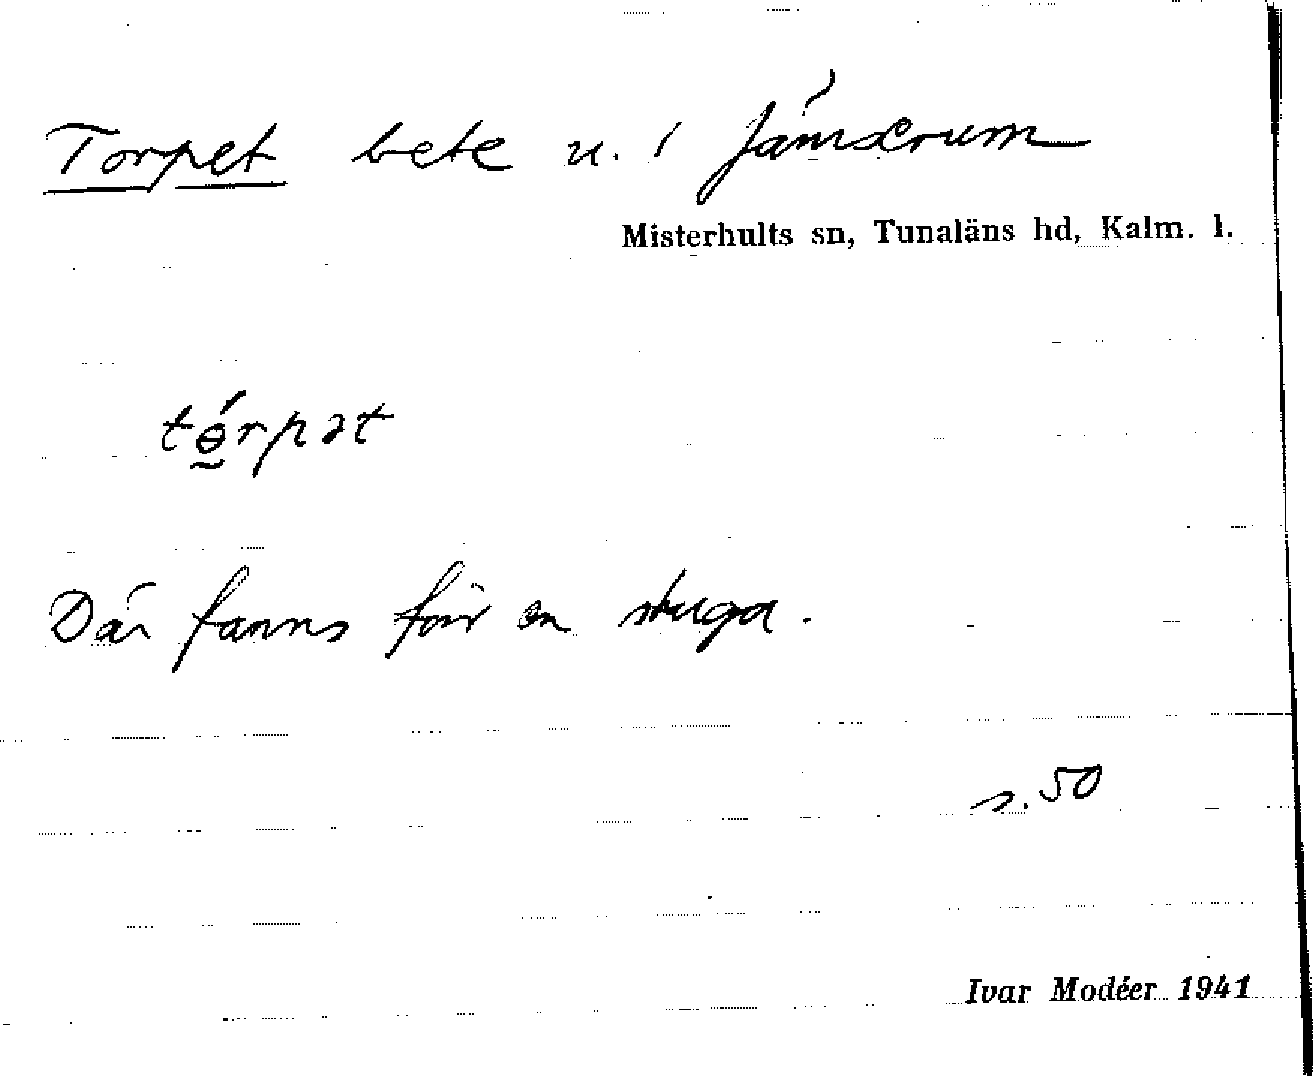 Torpet bete u. i Jämserum
Misterhults sn, Tunaläns hd, Kalm. l.
térpət
Där fanns förr en stuga.
s. 50
Ivar Modéer 1941